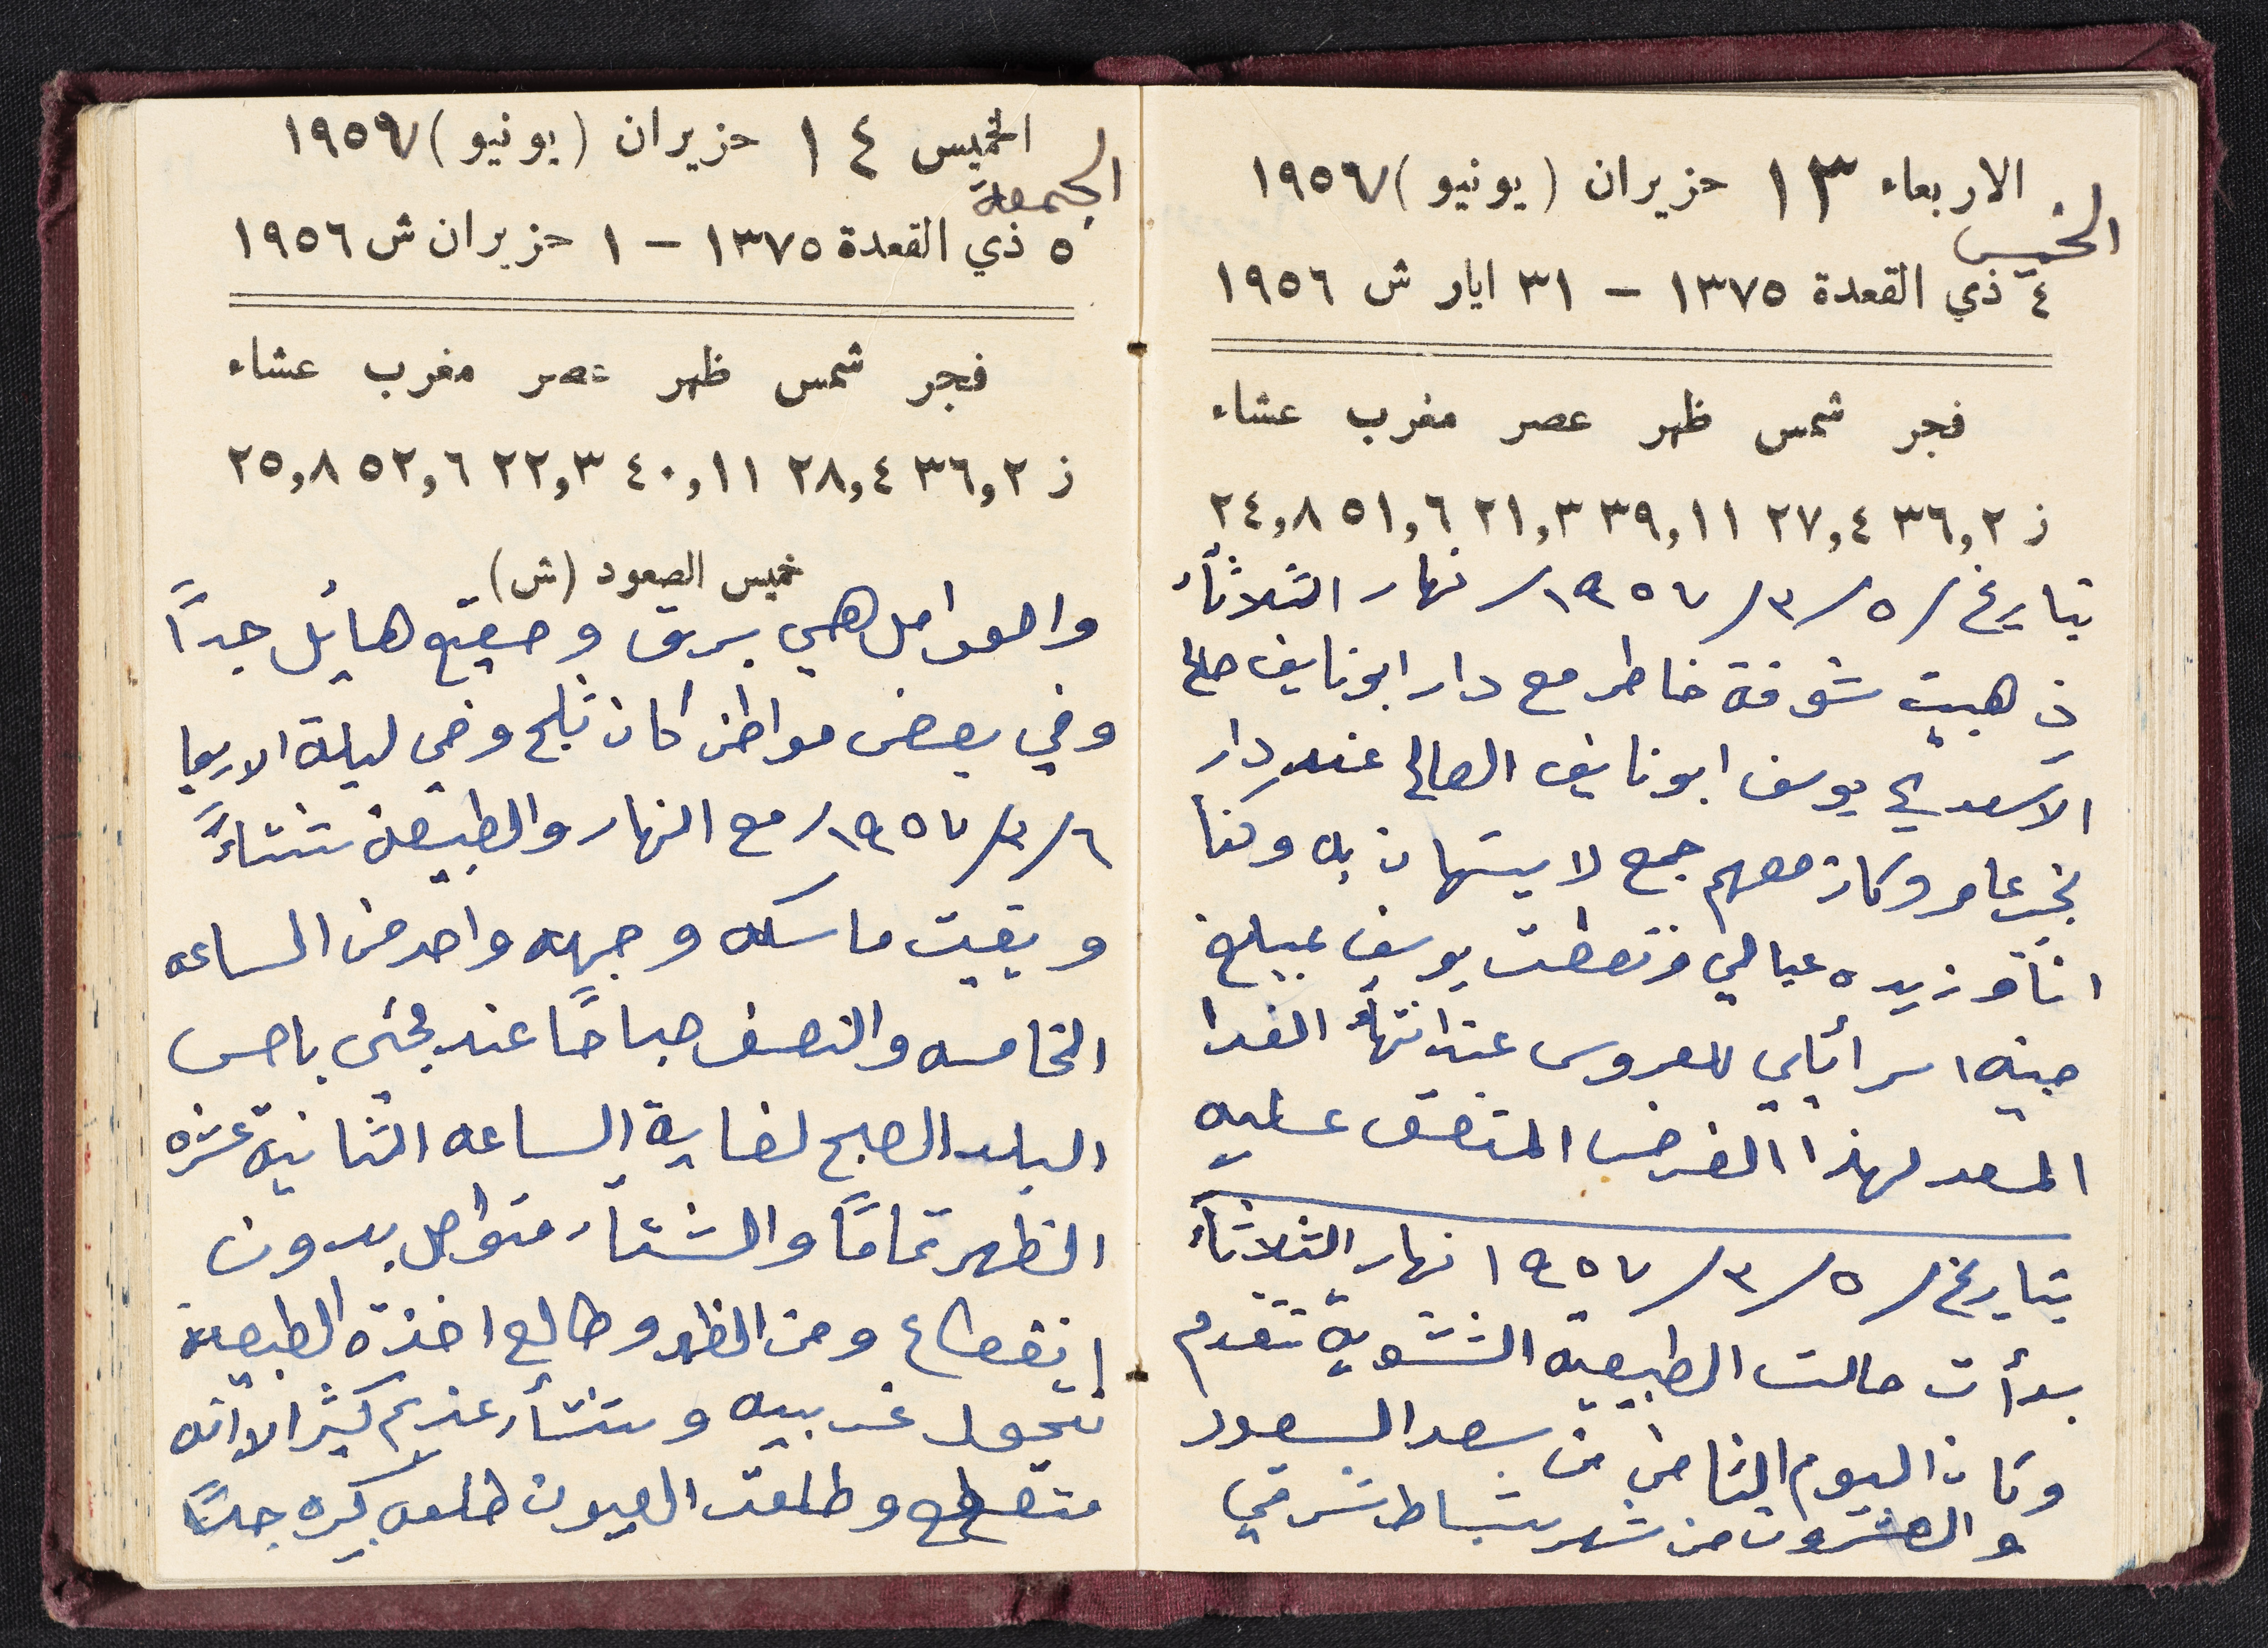 الاربعاء ١٣ حزيران (يونيو) ١٩٥٦٧
الخميس
٤ ذي القعدة ١٣٧٥ – ٣١ ايار ش ١٩٥٦
فجر شمس ظهر عصر مغرب عشاء
ز ٣٦,٢ ٢٧,٤ ٣٩,١١ ٢١,٣ ٥١,٦ ٢٤,٨
بتاريخ / ٥ / ٣ / ١٩٥٧ / نهار الثلاثاء
ذهبت شوفة خاطر مع دار ابو نايف صالح
الاسعد يوسف ابو نايف الصالح عند دار
عامر وكان معهم جمع لا يستهان به وكنا
انا وزيده عيالي ونقطت يوسف بمبلغ
جنيه اسرائيلي للعروس عند انتهاء الغدا
المعد لهذا الغرض المتفق عليه
بتاريخ / ٥ / ٣ / ١٩٥٧ نهار الثلاثاء
بدأت حالت الطبيعة الشتوية تتقدم
وكان اليوم الثامن من سعد السعود
والعشرون من شهر شباط شرقي
الخميس ١٤ حزيران (يونيو) ١٩٥٦٧
الجمعة
٥ ذي القعدة ١٣٧٥ – ١ حزيران ش ١٩٥٦
فجر شمس ظهر عصر مغرب عشاء
ز ٣٦,٢ ٢٨,٤ ٤٠,١١ ٢٢,٣ ٥٢,٦ ٢٥,٨
خميس الصعود (ش)
والعوامل هي برق وصقيع هايل جداً
وفي بعض مواطن كان ثلج وفي ليلة الاربعا
٦ / ٣ / ١٩٥٧ / مع النهار والطبيعة شتاءً
وبقيت ماسكه وجهه واحد من الساعه
الخامسه والنصف صباحاً عند مجئي باص
البلد الصبح لغاية الساعه الثانية عشره
الظهر تماماً والشتاء متواصل بدون
انقطاع ومن الظهر وطالع اخذة الطبيعة
تتحول غربيه وشتاء غزير كثير الا انه
متقطع وطلعت العيون طلعه كبيره جداً